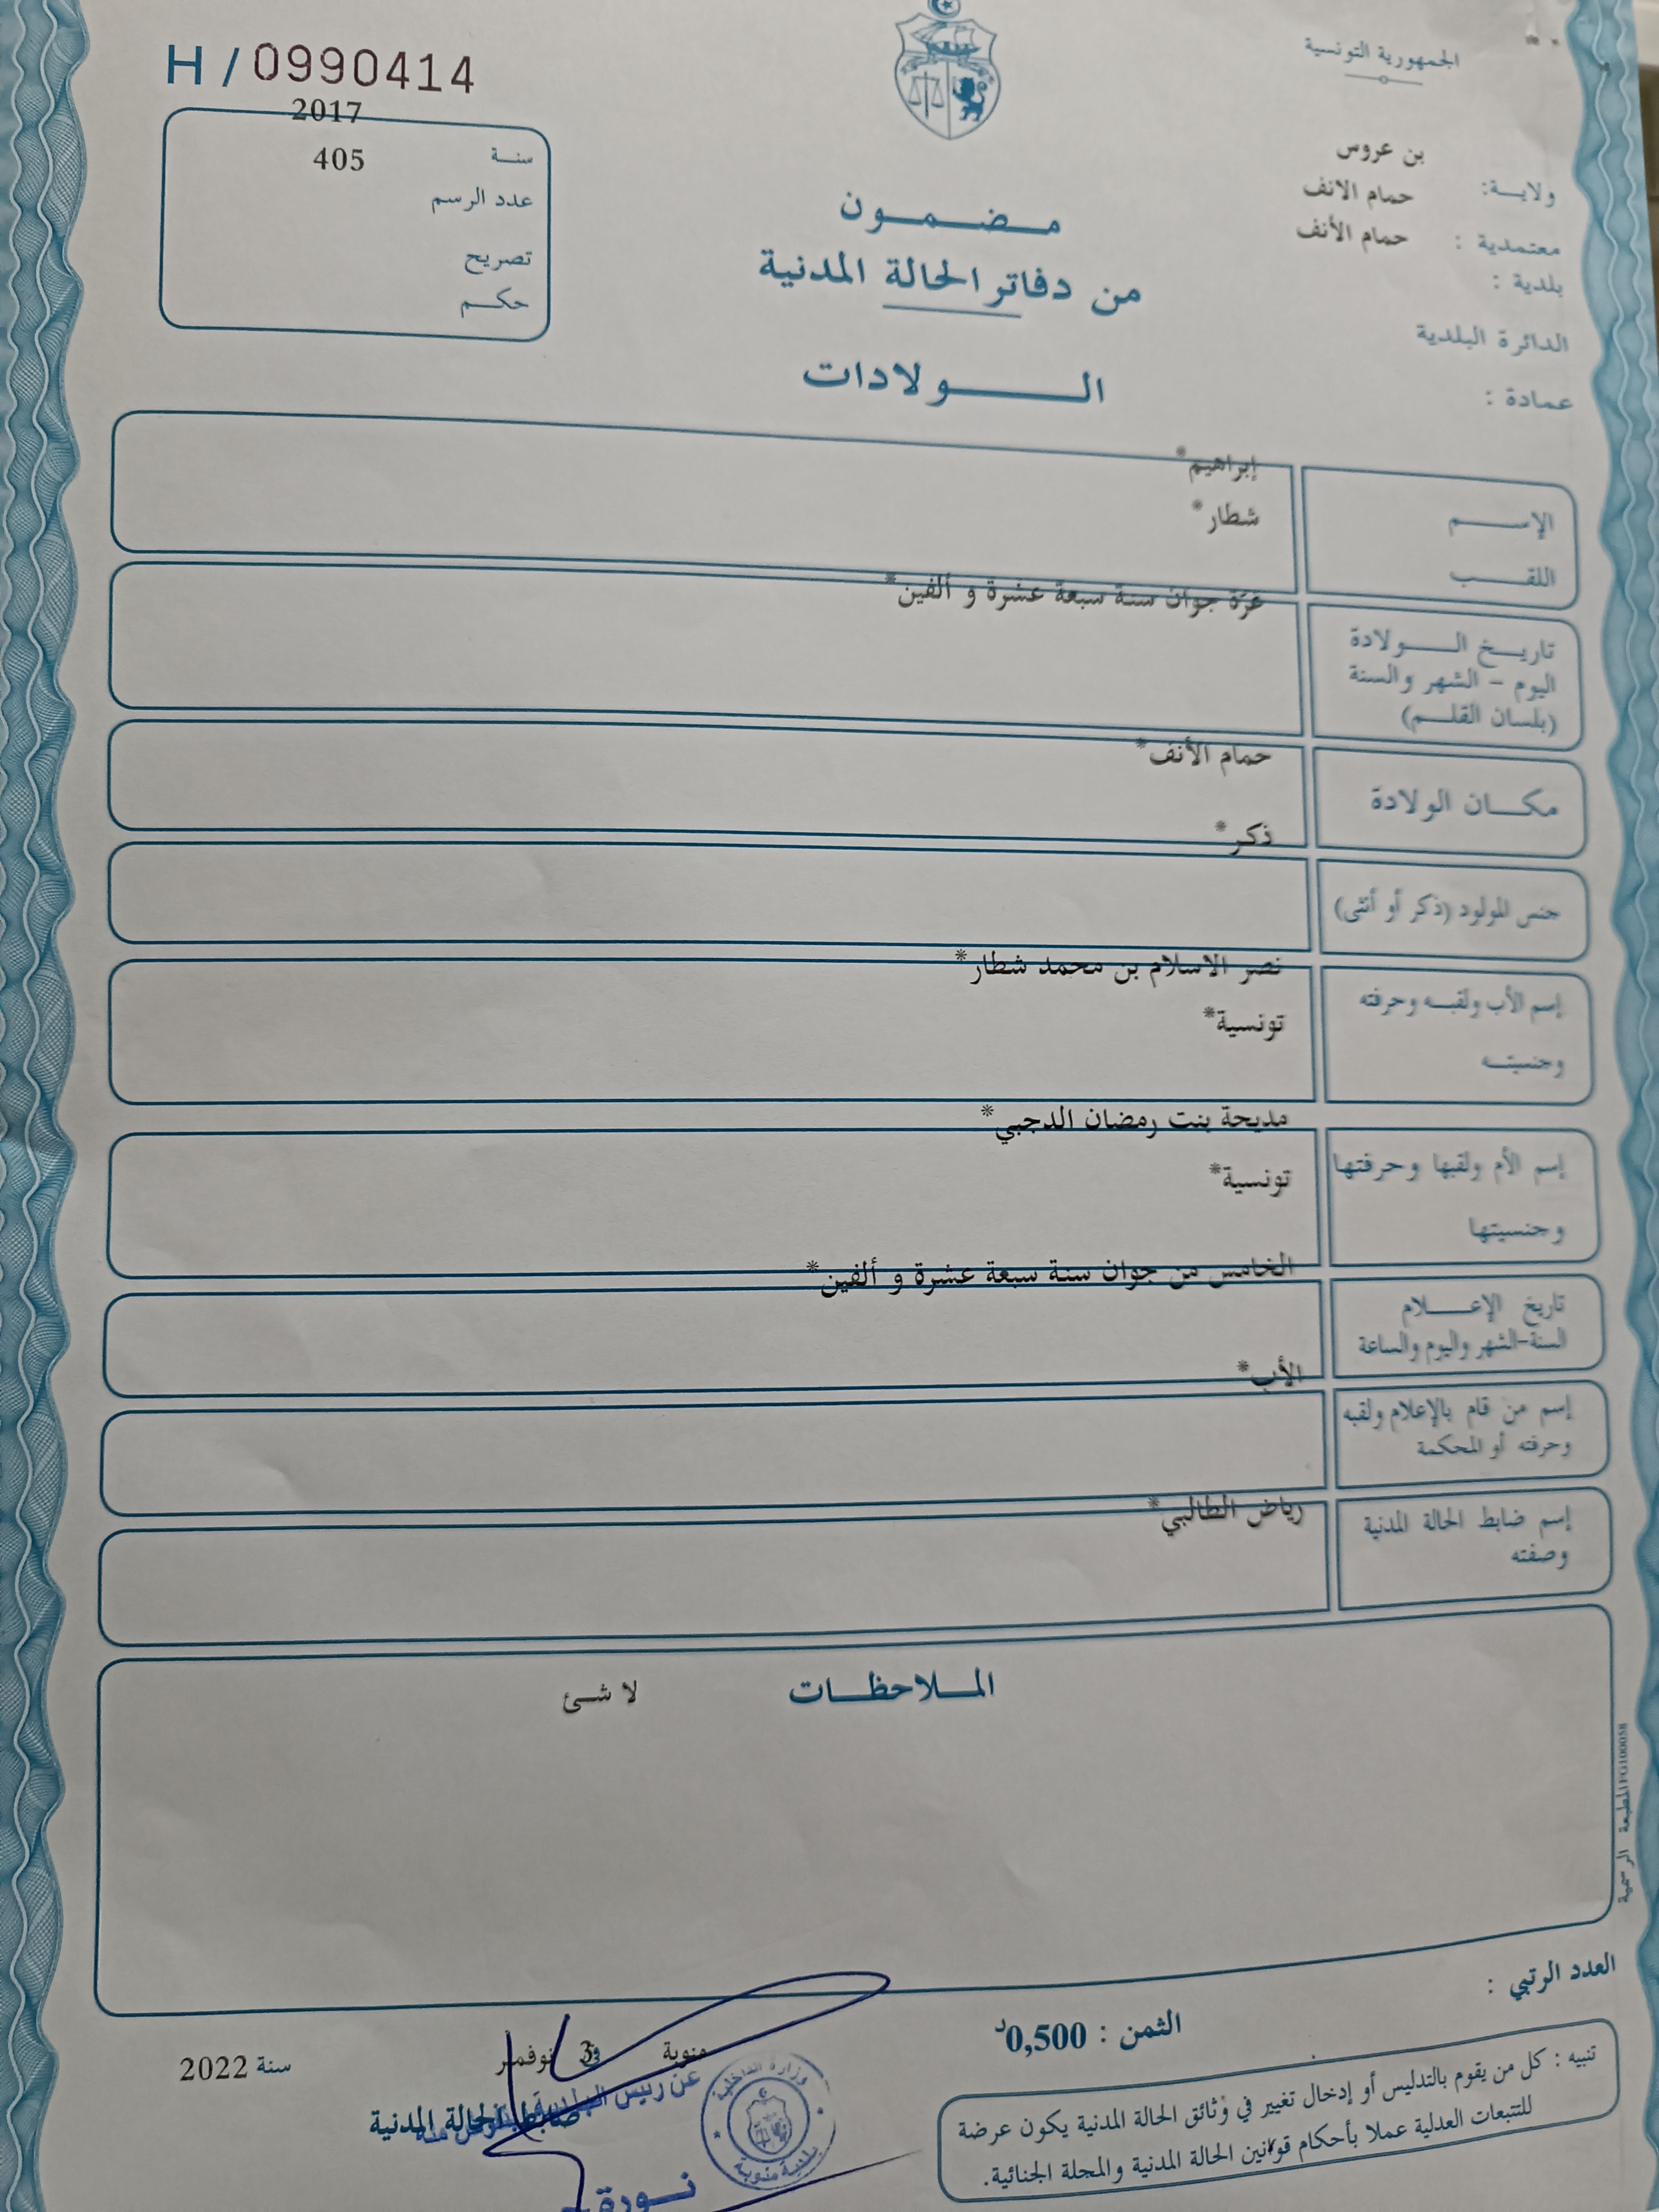 H / 0990414
الجمهورية التونسية
2017
سنة
405
عدد الرسم
تصريح
حكم
بن عروس
ولاية:
حمام الانف
معتمدية :
حمام الأنف
بلدية :
الدائرة البلدية
عمادة :
مضمون
من دفاتر الحالة المدنية
الولادات
إبراهيم*
الإسم
شطار*
اللقب
غرّة جوان سنة سبعة عشرة و ألفين*
تاريخ الولادة
اليوم - الشهر والسنة
(بلسان القلم)
حمام الأنف*
مكان الولادة
ذكر*
جنس المولود (ذكر أو أنثى)
نصر الاسلام بن محمد شطار*
إسم الأب ولقبه وحرفته
تونسية*
وجنسيته
مديحة بنت رمضان الدجبي*
إسم الأم ولقبها وحرفتها
تونسية*
وجنسيتها
الخامس من جوان سنة سبعة عشرة و ألفين*
تاريخ الإعلام
السنة-الشهر واليوم والساعة
الأب*
إسم من قام بالإعلام ولقبه
وحرفته أو المحكمة
رياض الطالبي*
إسم ضابط الحالة المدنية
وصفته
الملاحظات
لا شئ
العدد الرتبي :
الثمن : 0,500د
تنبيه : كل من يقوم بالتدليس أو إدخال تغيير في وثائق الحالة المدنية يكون عرضة
للتتبعات العدلية عملا بأحكام قوانين الحالة المدنية والمجلة الجنائية.
منوبة
3 نوفمبر
سنة 2022
عن رئيس البلدية
ضابط الحالة المدنية
وزارة الداخلية
بلدية منوبة
نورة
المطبعة الرسمية